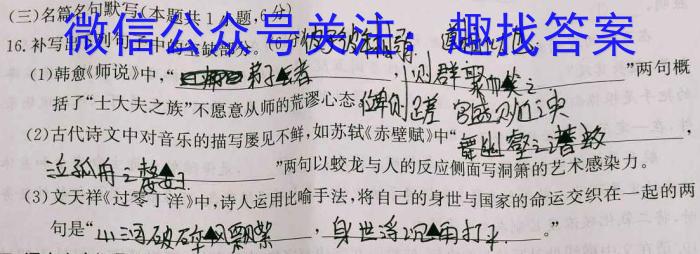 (三)名篇名句默写(本题共1小题,6分)
微信公众号关注:趣找答案
16.补写出下列句子中的空缺部分。(6分)
(1)韩愈《师说》中,“ 弟子者,则群聚而笑之”两句概
括了“士大夫之族”不愿意从师的荒谬心态。位卑则足羞 官盛则近谀
(2)古代诗文中对音乐的描写屡见不鲜,如苏轼《赤壁赋》中“舞幽壑之潜蛟
泣孤舟之嫠妇”两句以蛟龙与人的反应侧面写洞箫的艺术感染力。
(3)文天祥《过零丁洋》中,诗人运用比喻手法,将自己的身世与国家的命运交织在一起的两
句是“山河破碎风飘絮,身世浮沉雨打萍。”